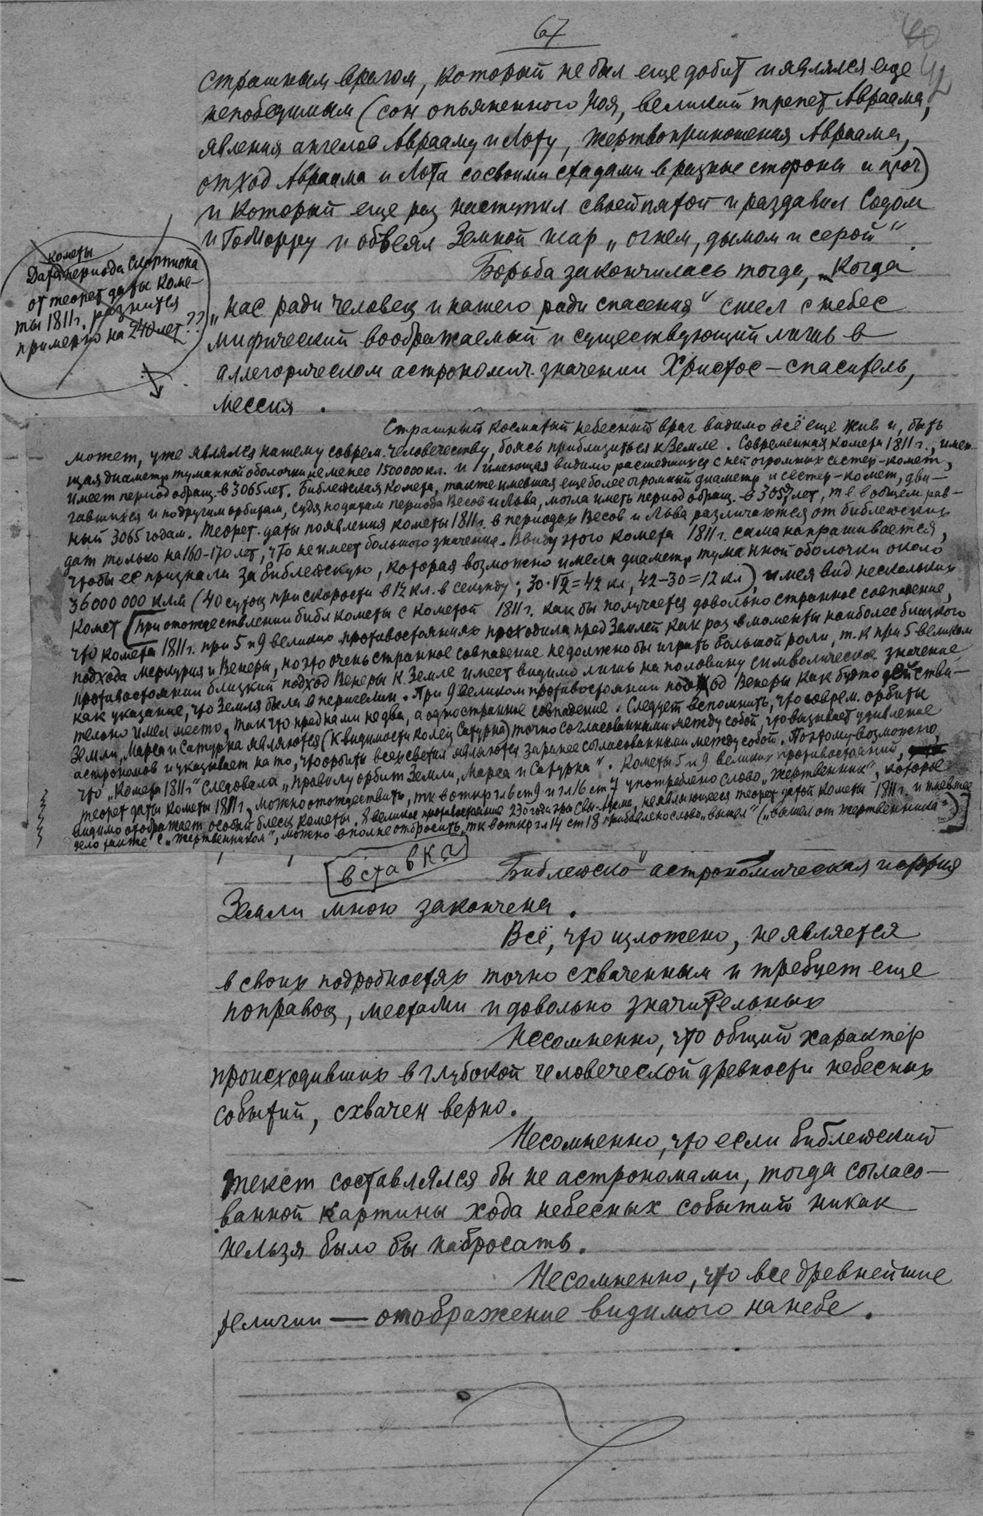 67
40
42
страшным врагом, который не был еще добит и являлся еще
непобедимым (сон опьяненного Ноя, великий трепет Авраама,
явления ангелов Аврааму и Лоту, жертвоприношения Авраама,
отход Авраама и Лота со своими стадами в разные стороны и проч)
и который еще раз наступил своей пятой и раздавил Содом
и Гоморру и обвеял Земной шар „огнем, дымом и серой“.
Борьба закончилась тогда, когда
„нас ради человец и нашего ради спасения“ сшел с небес
мифический воображаемый и существующий лишь в
аллегорическом астрономич. значении Христос — спаситель,
мессия.
кометы
Дата периода Скорпиона
от теорет даты коме-
ты 1811 г. разнится
примерно на 240 лет??
Страшный косматый небесный враг видимо всё еще жив и, быть
может, уже являлся нашему соврем. человечеству, боясь приблизиться к Земле. Современная комета 1811 г., имею-
щая диаметр туманной оболочки не менее 1500000 кл. и имеющая видимо расшедшихся с ней огромных сестер-комет,
имеет период обращ. в 3065 лет. Библейская комета, также имевшая еще более огромный диаметр и сестер-комет, дви-
гавшихся и по другим орбитам, судя по датам периода Весов и Льва, могла иметь период обращ. в 3057 лет, т.е. в общем рав-
ный 3065 годам. Теорет. даты появления кометы 1811 г. в периодах Весов и Льва различаются от библейских
дат только на 160-170 лет, что не имеет большого значения. Ввиду этого комета 1811 г. сама напрашивается,
чтобы её признали за библейскую, которая возможно имела диаметр туманной оболочки около
36000000 клм (40 суток при скорости в 12 кл. в секунду; 30·√2=42 кл, 42-30=12 кл) имея вид нескольких
комет (при отожествлении библ кометы с кометой 1811 г. как бы получается довольно странное совпадение,
что комета 1811 г. при 5 и 9 великих противостояниях проходила пред Землей как раз в моменты наиболее близкого
подхода Меркурия и Венеры, но это очень странное совпадение не должно бы играть большой роли, т.к при 5 великом
противостоянии близкий подход Венеры к Земле имеет видимо лишь на половину символическое значение,
как указание, что Земля была в перигелии. При 9 великом противостоянии подход Венеры как будто действи-
тельно имел место, так что пред нами не два, а одно странное совпадение. Следует вспомнить, что соврем. орбиты
Земли, Марса и Сатурна являются (к видимости колец Сатурна) точно согласованными между собой, что вызывает удивление
астрономов и указывает на то, что орбиты всех светил являются заранее согласованными между собой. Поэтому возможно,
что „Комета 1811 г“ следовала „правилу орбит Земли, Марса и Сатурна“. Кометы 5 и 9 великих противостояний,
теорет даты кометы 1811 г. можно отожествить, тк в откр гл 6 ст 9 и гл 16 ст 7 употреблено слово „жертвенник“, которое
видимо отображает особый блеск кометы. 
дело также с „жертвенником“, можно вполне отбросить, тк в откр гл 14 ст 18 прибавлено слово „вышел“ („вышел от жертвенника“))
вставка
Библейско-астрономическая история
Земли мною закончена.
Всё, что изложено, не является
в своих подробностях точно схваченным и требует еще
поправок, местами и довольно значительных
Несомненно, что общий характер
происходивших в глубокой человеческой древности небесных
событий, схвачен верно.
Несомненно, что если библейский
текст составлялся бы не астрономами, тогда согласо-
ванной картины хода небесных событий никак
нельзя было бы набросать.
Несомненно, что все древнейшие
религии — отображение видимого на небе.